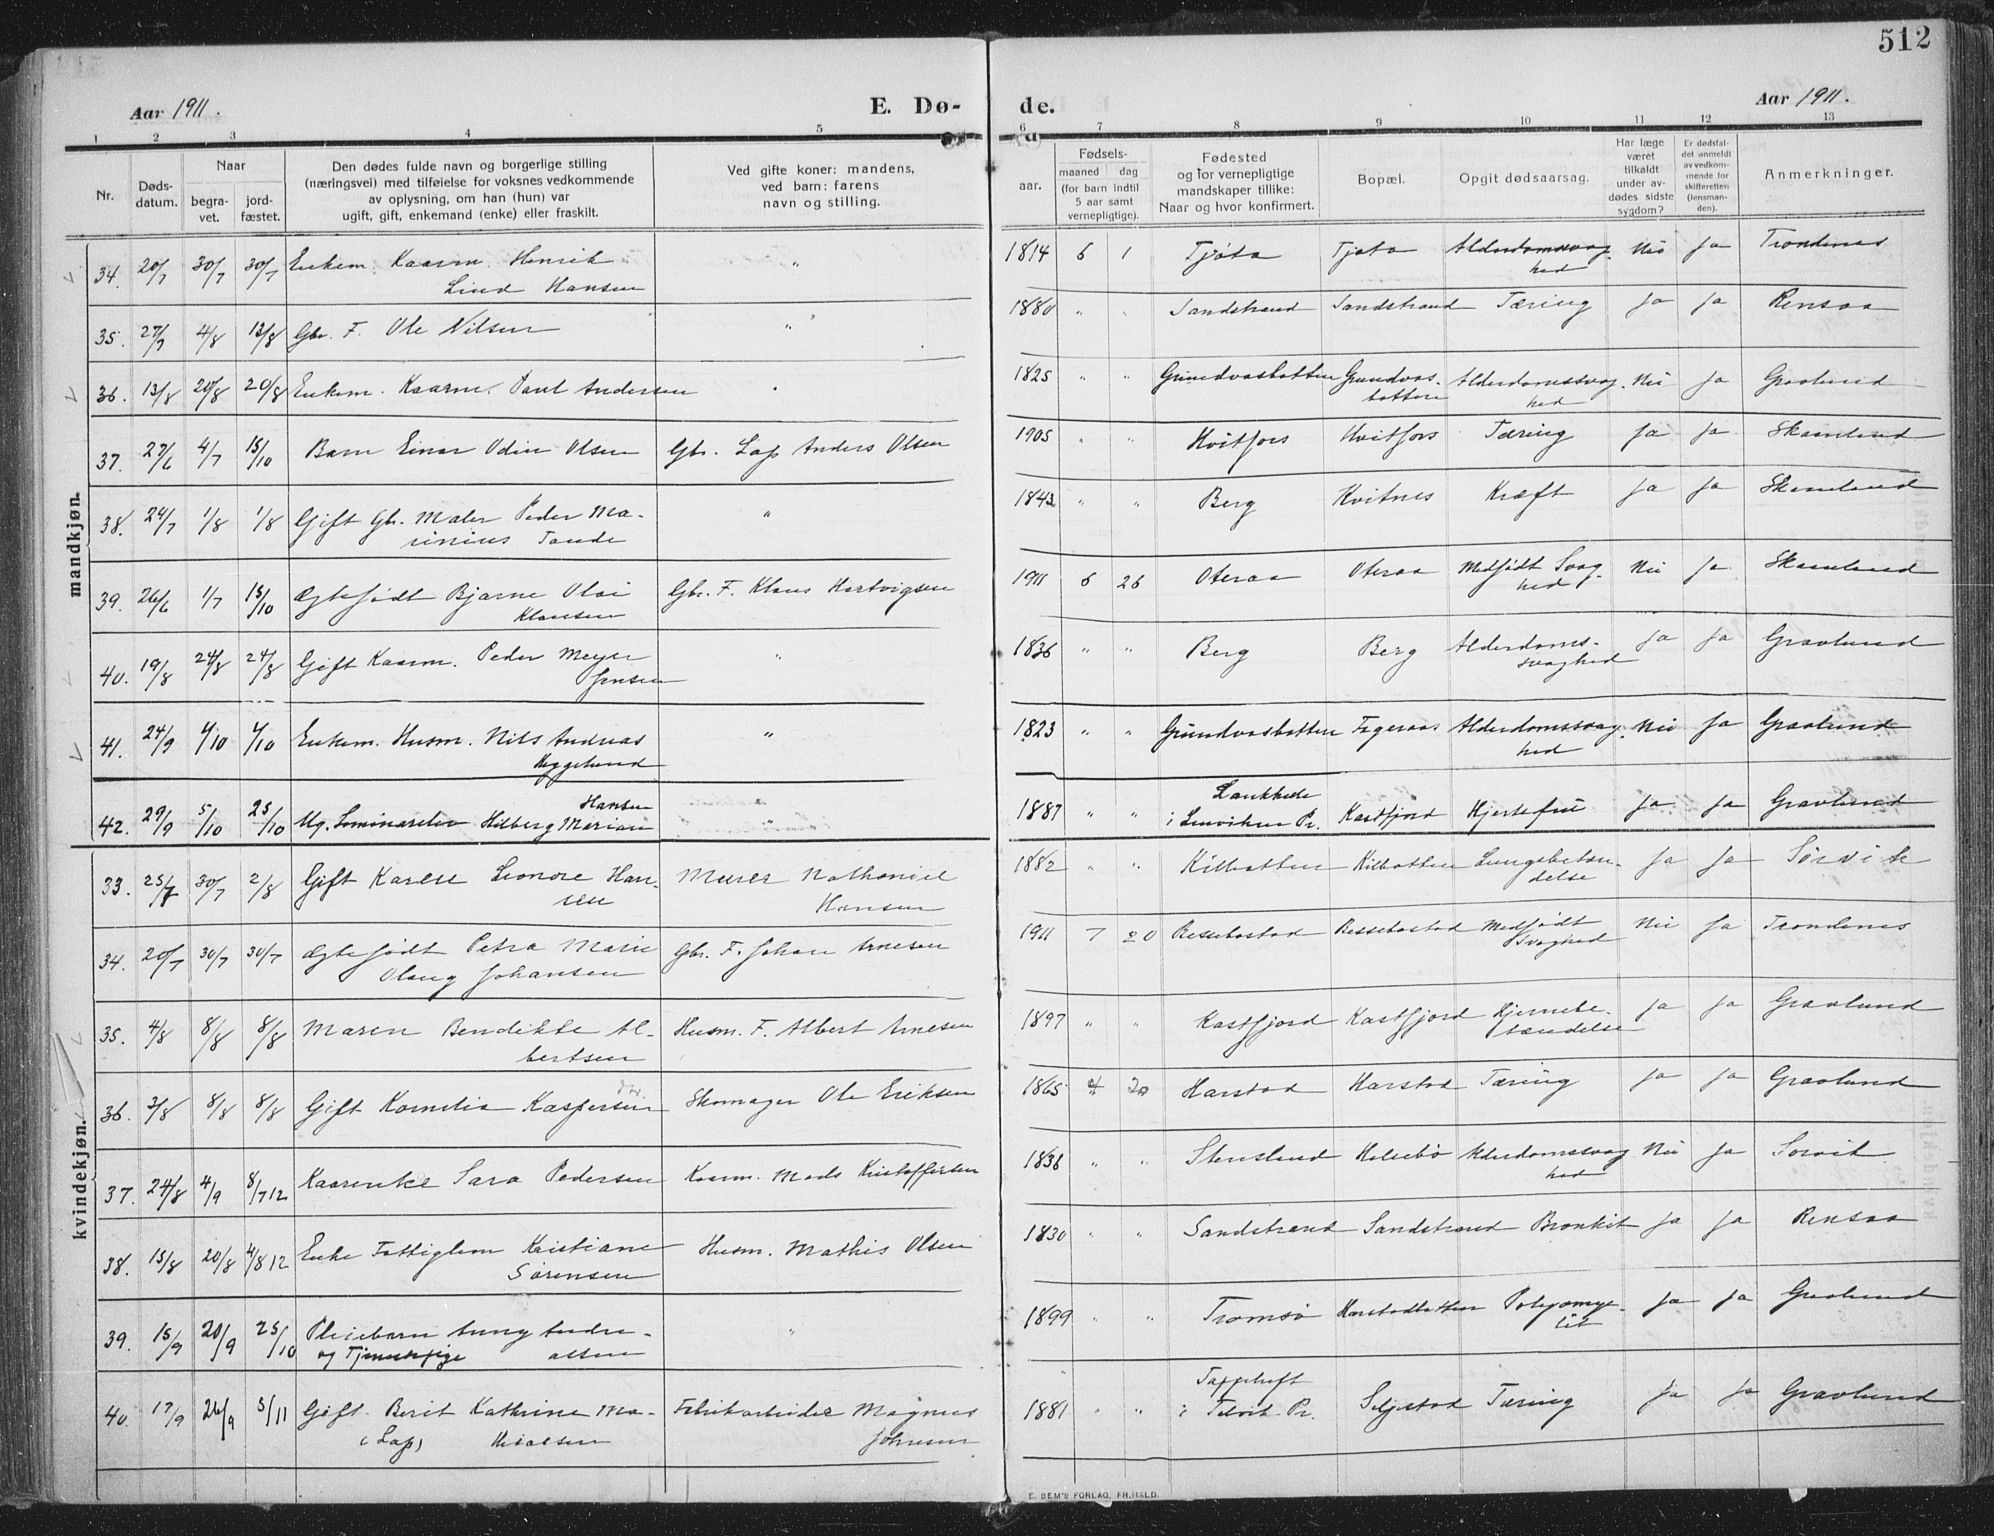 512
Aar 1911.
E. Dø-
de.
Aar 1911.
1 2 3 4 5 6 7 8 9 10 11 12 13
Nr.
Døds-
datum.
Naar
begra-
vet.
jord-
fæstet.
Den dødes fulde navn og borgerlige stilling
(næringsvei) med tilføielse for voksnes vedkommende
av oplysning, om han (hun) var
ugift, gift, enkemand (enke) eller fraskilt.
Ved gifte koner: mandens,
ved barn: farens
navn og stilling.
aar.
Fødsels-
maaned dag
(for barn indtil
5 aar samt
vernepligtige).
Fødested
og for vernepligtige
mandskaper tillike:
Naar og hvor konfirmert.
Bopæl.
Opgit dødsaarsag.
Har læge
været
tilkaldt
under av-
dødes sidste
sygdom?
Er dødsfal-
det anmeldt
av vedkom-
mende for
skifteretten
(lensman-
den).
Anmerkninger.
mandkjøn.
34. 20/7 30/7 30/7 Enkem. Kaarm. Henrik " 1814 6 1 Tjøta Tjøta Alderdomssvag- Nei Ja Trondenes
Lind Hansen hed
35. 27/7 4/8 13/8 Gbr. F. Ole Nilsen " 1880 " " Sandstrand Sandstrand Tæring Ja Ja Rensaa
36. 13/8 20/8 20/8 Enkem. Kaarm. Paul Andersen " 1825 " " Grundvasbotten Grundvas- Alderdomssvag- Nei Ja Gravlund
botten hed
37. 27/6 4/7 15/10 Barn Einar Odin Olsen Gbr. Lap Anders Olsen 1905 " " Kvitfors Kvitfors Tæring Ja Ja Skaanland
38. 24/7 1/8 1/8 Gift Gbr. Maler Peder Ma- " 1843 " " Berg Kvitnes Kræft Ja Ja Skaanland
rinius Tande
39. 26/6 1/7 15/10 Ægtefødt Bjarne Olai Gbr. F. Klaus Hartvigsen 1911 6 26 Oteraa Oteraa Medfødt Svag- Nei Ja Skaanland
Klausen hed
40. 19/8 24/8 24/8 Gift Kaarm. Peder Meyer " 1836 " " Berg Berg Alderdoms- Ja Ja Gravlund
Jensen svaghed
41. 24/9 1/10 1/10 Enkem. Husm. Nils Andreas " 1823 " " Grundvasbotten Fageraas Alderdomssvag- Nei Ja Gravlund
Hyggelund hed
Hansen
42. 29/9 5/10 25/10 Ug. Seminarelev Hilberg Marian " 1887 " " Kastfjord Hjertefeil Ja Ja Gravlund
i Lenviken Pr.
kvindekjøn.
33. 25/7 30/7 2/8 Gift Karen Leonore Han- Murer Nathaniel 1882 " " Kilbotten Kilbotten Lungebetæn- Ja Ja Sørvik
sen Hansen delse
34. 20/7 30/7 30/7 Ægtefødt Petra Marie Gbr. F. Johan Arnesen 1911 7 20 Ressebostad Ressebostad Medfødt Nei Ja Trondenes
Olaug Johansen Svaghed
35. 4/8 8/8 8/8 Maren Bendikte Al- Husm. F. Albert Arnesen 1897 " " Kastfjord Kastfjord Hjernebe- Ja Ja Gravlund
bertsen tændelse
36. 3/8 8/8 8/8 Gift Kornelia Kaspersen Skomager Ole Eriksen 1865 4 20 Harstad Harstad Tæring Ja Ja Gravlund
dtr.
37. 24/8 4/9 8/7 12 Kaarenke Sara Pedersen Kaarm. Mads Kristoffersen 1836 " " Stensland Halsebø Alderdomssvag Nei Ja Sørvik
hed
38. 15/8 20/8 4/8 12 Enke Fattiglem Kristiane Husm. Mathis Olsen 1830 " " Sandstrand Sandstrand Bronkit Ja Ja Rensaa
Sørensen
39. 15/9 20/9 25/10 Pleiebarn Aung Andre- " 1899 " " Tromsø Harstadbotten Poliomye- Ja Ja Gravlund
og Tjenestepige assen lit
40. 17/9 26/9 3/11 Gift Berit Kathrine Ma- Fabrikarbeider Magnus 1881 " " Seljestad Tæring Ja Ja Gravlund
(Lap) thisen Johnsen i Talvik Pr.
E. SEM'S FORLAG, FR.HALD.